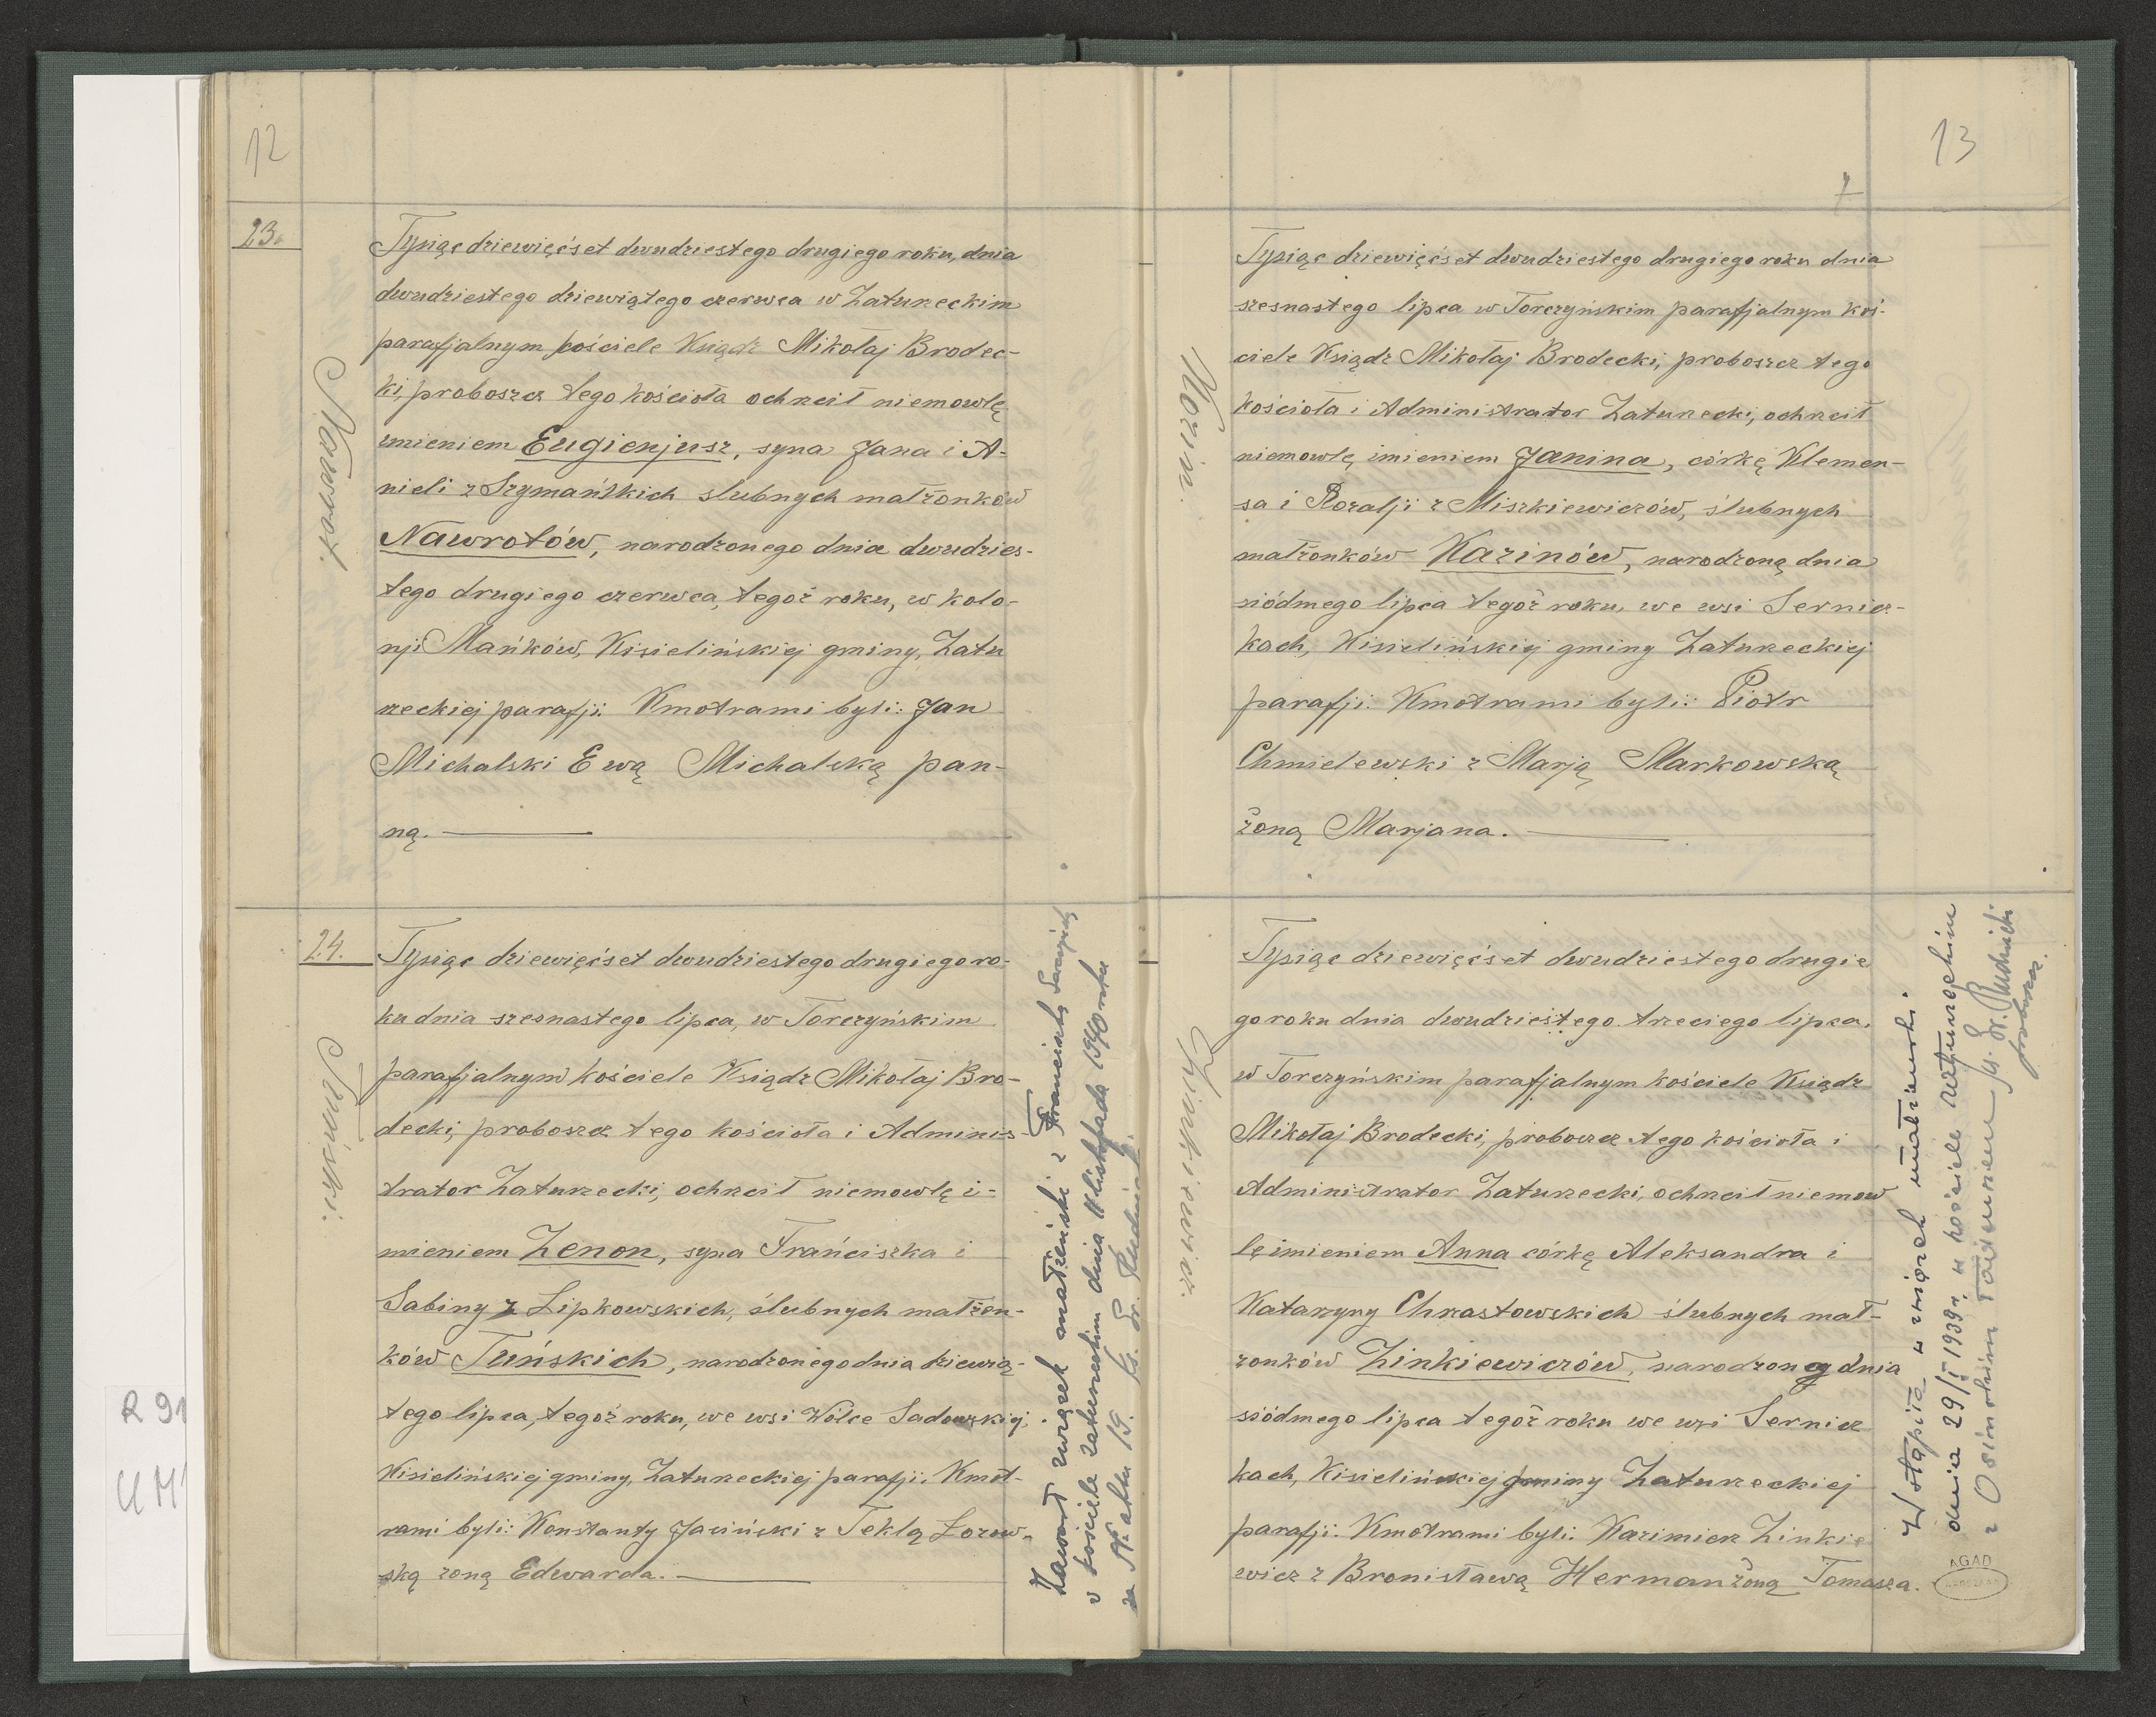 12
23.
Nawrot.
Tysiąc dziewięćset dwudziestego drugiego roku, dnia
dwudziestego dziewiątego czerwca w Zatureckim
parafjalnym kościele Ksiądz Mikołaj Brodec-
ki, proboszcz tego kościoła ochrcił niemowlę
imieniem Eugienjusz, syna Jana i A-
nieli z Szymańskich slubnych małżonków
Nawrotów, narodzonego dnia dwudzies-
tego drugiego czerwca, tegoż roku, w kolo-
nji Mańków, Kisielińskiej gminy, Zatu
reckiej parafji. Kmotrami byli: Jan
Michalski Ewą Michalską pan-
ną.
24.
Tuński.
Tysiąc dziewięćset dwudziestego drugiego ro-
ku dnia szesnastego lipca, w Torczyńskim
parafjalnym kościele Ksiądz Mikołaj Bro-
decki, proboszcz tego kościoła i Adminis-
trator Zaturzecki, ochrcił niemowlę i-
mieniem Zenon, syna Frańciszka i
Sabiny z Lipkowskich, ślubnych małżon-
ków Tuńskich, narodzonego dnia dziewią-
tego lipca, tegoż roku, we wsi Wólce Sadowskiej,
Kisielińskiej gminy, Zatureckiej parafji. Kmot-
rami byli: Konstanty Jasiński z Teklą Łozow-
ską żoną Edwarda.
Zawarł związek małżeński z Franciszką
w kościele zatureckim dnia 11 listopada 1940 roku
za № aktu 19. Ks. Fr. Rudnicki
13
7
Kozin.
Tysiąc dziewięćset dwudziestego drugiego roku dnia
szesnastego lipca w Torczyńskim parafjalnym koś-
ciele Ksiądz Mikołaj Brodecki, proboszcz tego
kościoła i Administrator Zaturecki, ochrcił
niemowlę, imieniem Janina, córkę Klemen-
sa i Rozalji z Miszkiewiczów, ślubnych
małżonków Kazinów, narodzoną dnia
siódmego lipca tegoż roku, we wsi Sernicz-
kach, Kisielińskiej gminy Zatureckiej
parafji. Kmotrami byli: Piotr
Chmielewski z Marją Markowską
żoną Marjana.
Zinkiewicz.
Tysiąc dziewięćset dwudziestego drugie
go roku dnia dwudziestego trzeciego lipca,
w Torczyńskim parafjalnym kościele Ksiądz
Mikołaj Brodecki, proboszcz tego kościoła i
Administrator Zaturzecki, ochrcił niemow
lę imieniem Anna córkę Aleksandra i
Katarzyny Chrastowskich ślubnych mał-
żonków Zinkiewiczów, narodzoną dnia
siódmego lipca tegoż roku we wsi Sernicz
kach, Kisielińskiej gminy Zaturzeckiej
parafji. Kmotrami byli: Kazimierz Zinkie
wicz z Bronisławą Herman żoną Tomasza.
Wstąpiła w związek małżeński
dnia 29/I 1939 r. w kościele zatureckim
z Osinskim Tadeuszem
Ks. Fr. Rudnicki
proboszcz.
AGAD
WARSZAWA
R 91